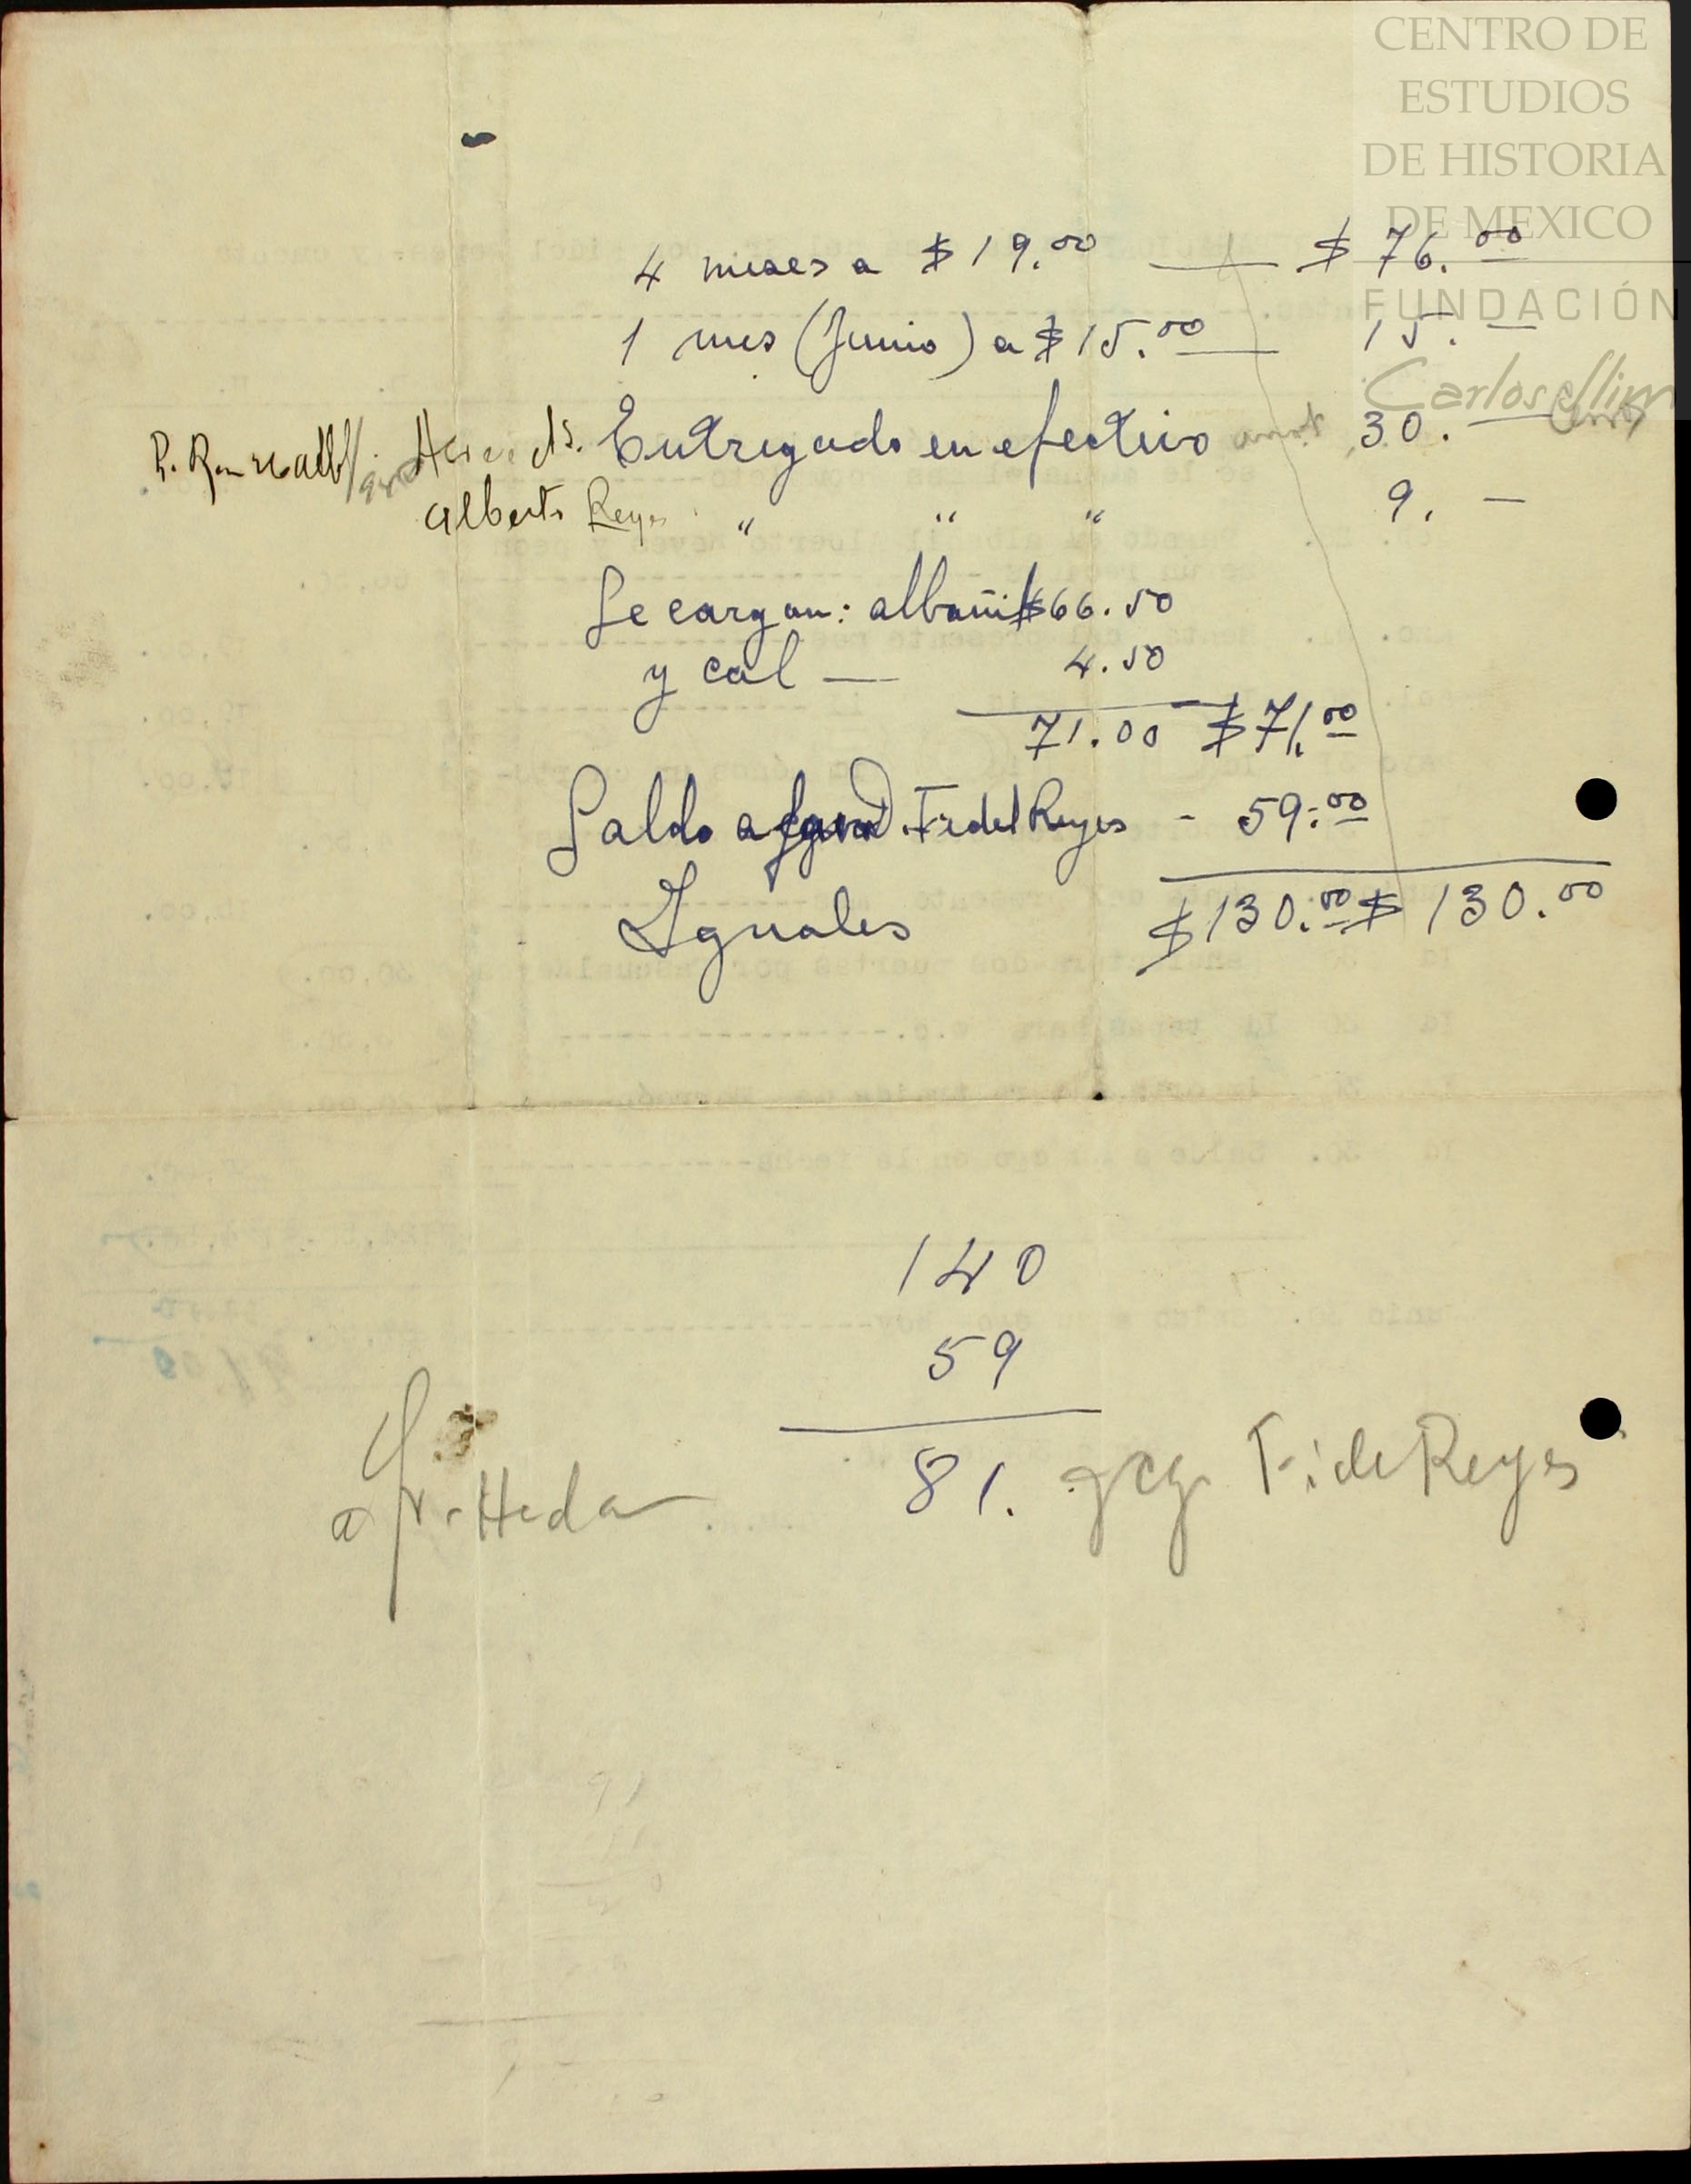 CENTRO DE
ESTUDIOS
DE HISTORIA
DE MEXICO
FUNDACIÓN
Carlos Slim
4 meses a $19.00 — $ 76.00
1 mes (Junio) a $15.00 — 15. —
Entregado en efectivo 30. —
Alberto Reyes " " " 9. —
Se cargan: albañil $66.50
y cal — 4.50
71.00 $71.00
Saldo a favor D. Fidel Reyes - 59.00
Iguales $130.00 $ 130.00
140
59
81. Fidel Reyes
a Sr. Heda